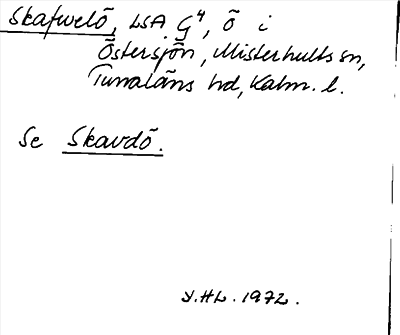 Skafwelö, LSA G⁴, ö i
Östersjön, Misterhults sn,
Tunaläns hd, Kalm. l.
Se Skavdö.
Y.HL. 1972.